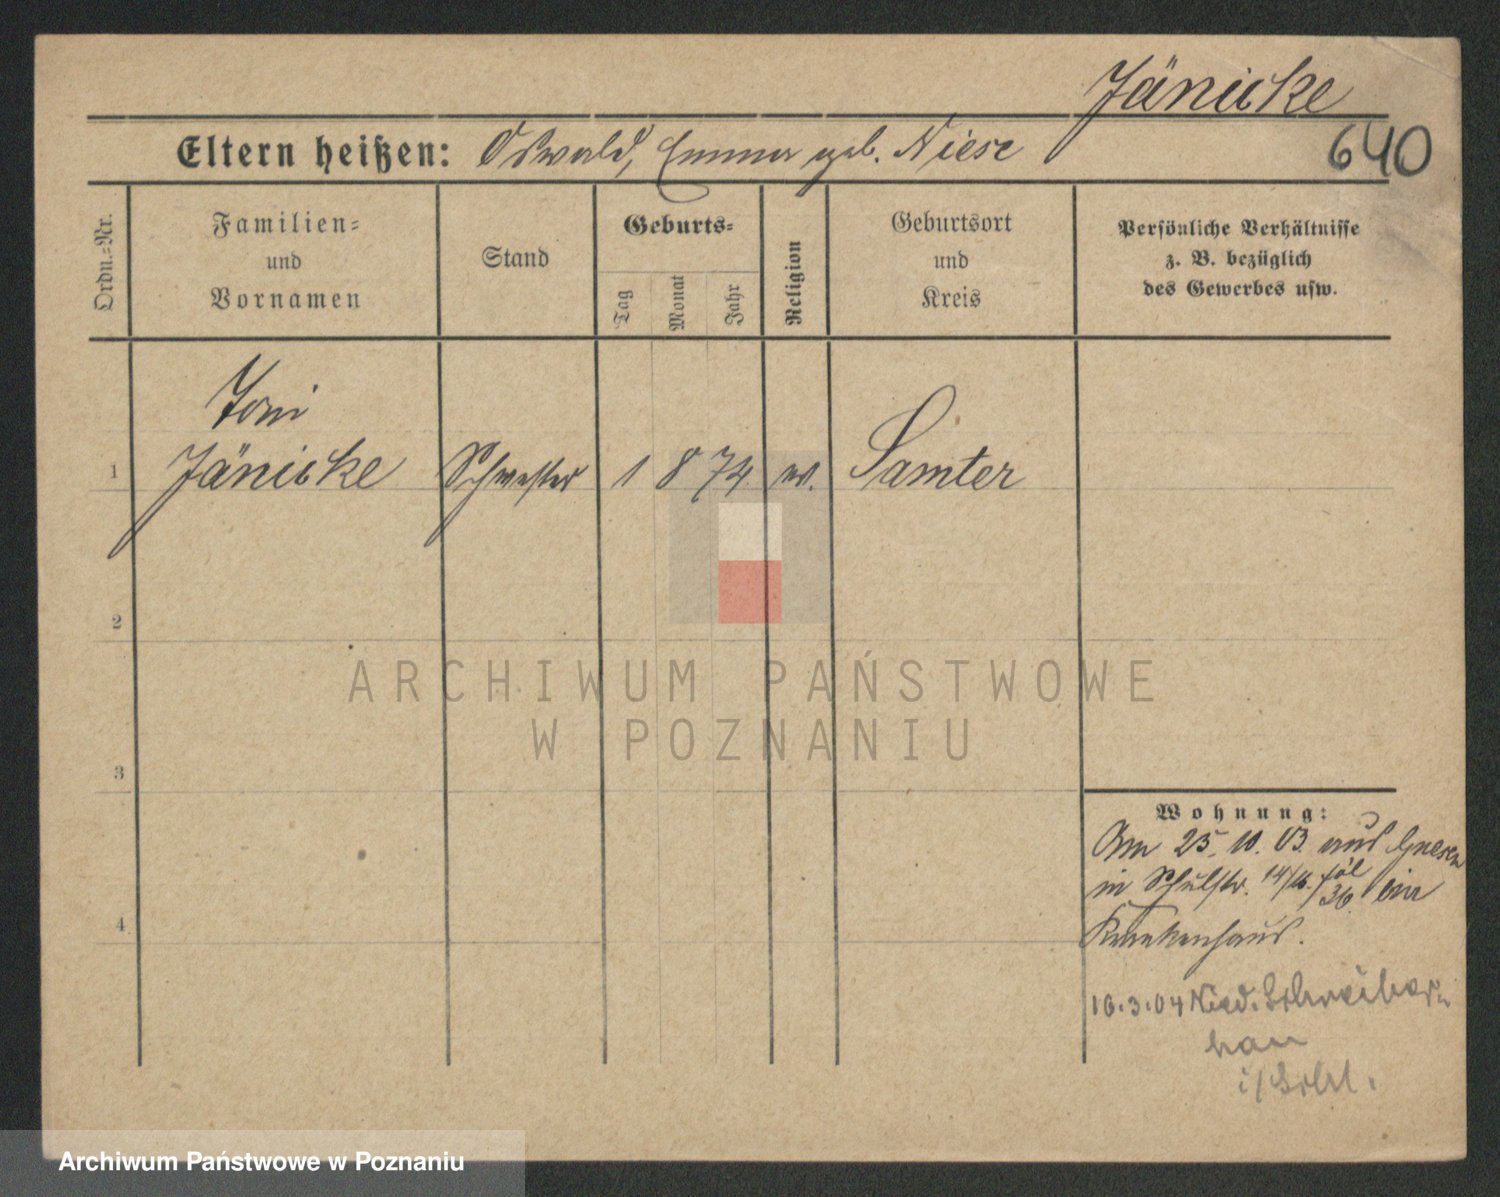 Jänicke
640
Eltern heißen: Oswald, Emma geb. Niese
Ordn.=Nr.
Familien=
und
Vornamen
Stand
Geburts=
Tag
Monat
Jahr
Religion
Geburtsort
und
Kreis
Persönliche Verhältnisse
z. B. bezüglich
des Gewerbes usw.
Toni
1 Jänicke Schwester 1 8 74 ev. Samter
2
ARCHIWUM PAŃSTWOWE
W POZNANIU
3
Wohnung:
Am 25. 10. 03. aus Gnesen
in Schulstr. 14/16. 36 im
Krankenhaus.
4
16.3.04 Nied. Schreiber
hau
i/Schl.
Archiwum Państwowe w Poznaniu